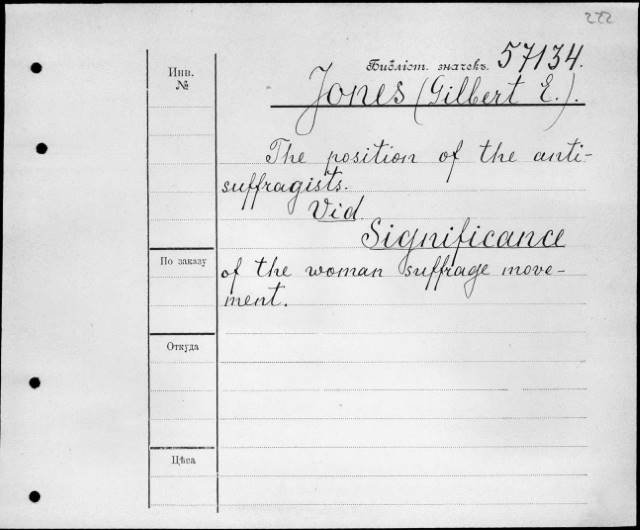 222
Библіот. значекъ. 57134.
Инв.
№
Jones (Gilbert E.).
The position of the anti-
suffragists.
Vid.
Significance
По заказу
of the woman suffrage move-
ment.
Откуда
Цѣна